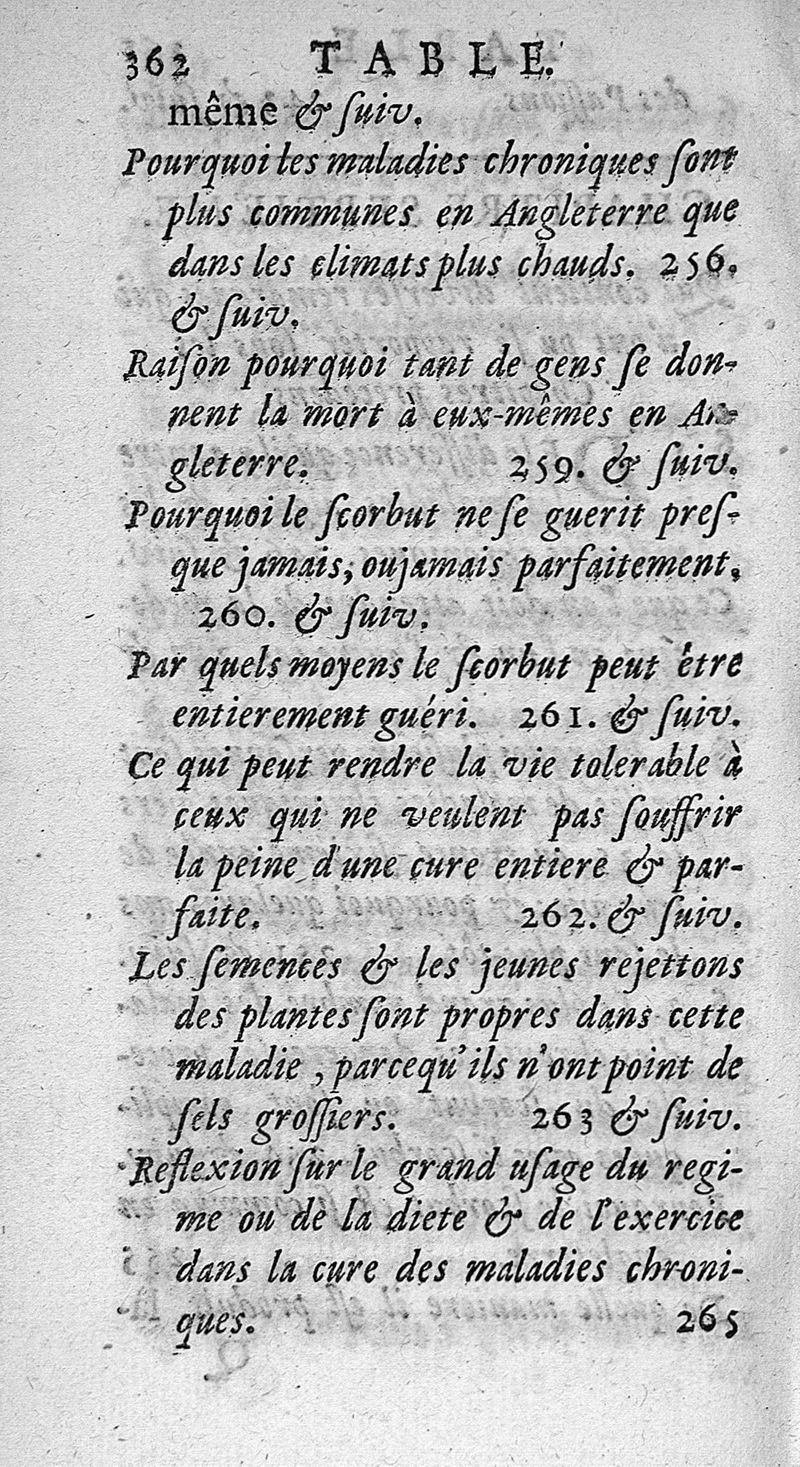 362 TABLE.
même & ſuiv.
Pourquoi les maladies chroniques ſont
plus communes en Angleterre que
dans les climats plus chauds. 256.
& ſuiv.
Raiſon pourquoi tant de gens ſe don-
nent la mort à eux-mêmes en An-
gleterre. 259. & ſuiv.
Pourquoi le ſcorbut ne ſe guerit preſ-
que jamais, ou jamais parfaitement.
260. & ſuiv.
Par quels moyens le ſcorbut peut être
entierement guéri. 261. & ſuiv.
Ce qui peut rendre la vie tolerable à
ceux qui ne veulent pas ſouffrir
la peine d'une cure entiere & par-
faite. 262. & ſuiv.
Les ſemences & les jeunes rejettons
des plantes ſont propres dans cette
maladie, parcequ'ils n'ont point de
ſels groſſiers. 263 & ſuiv.
Reflexion ſur le grand uſage du regi-
me ou de la diete & de l'exercice
dans la cure des maladies chroni-
ques. 265